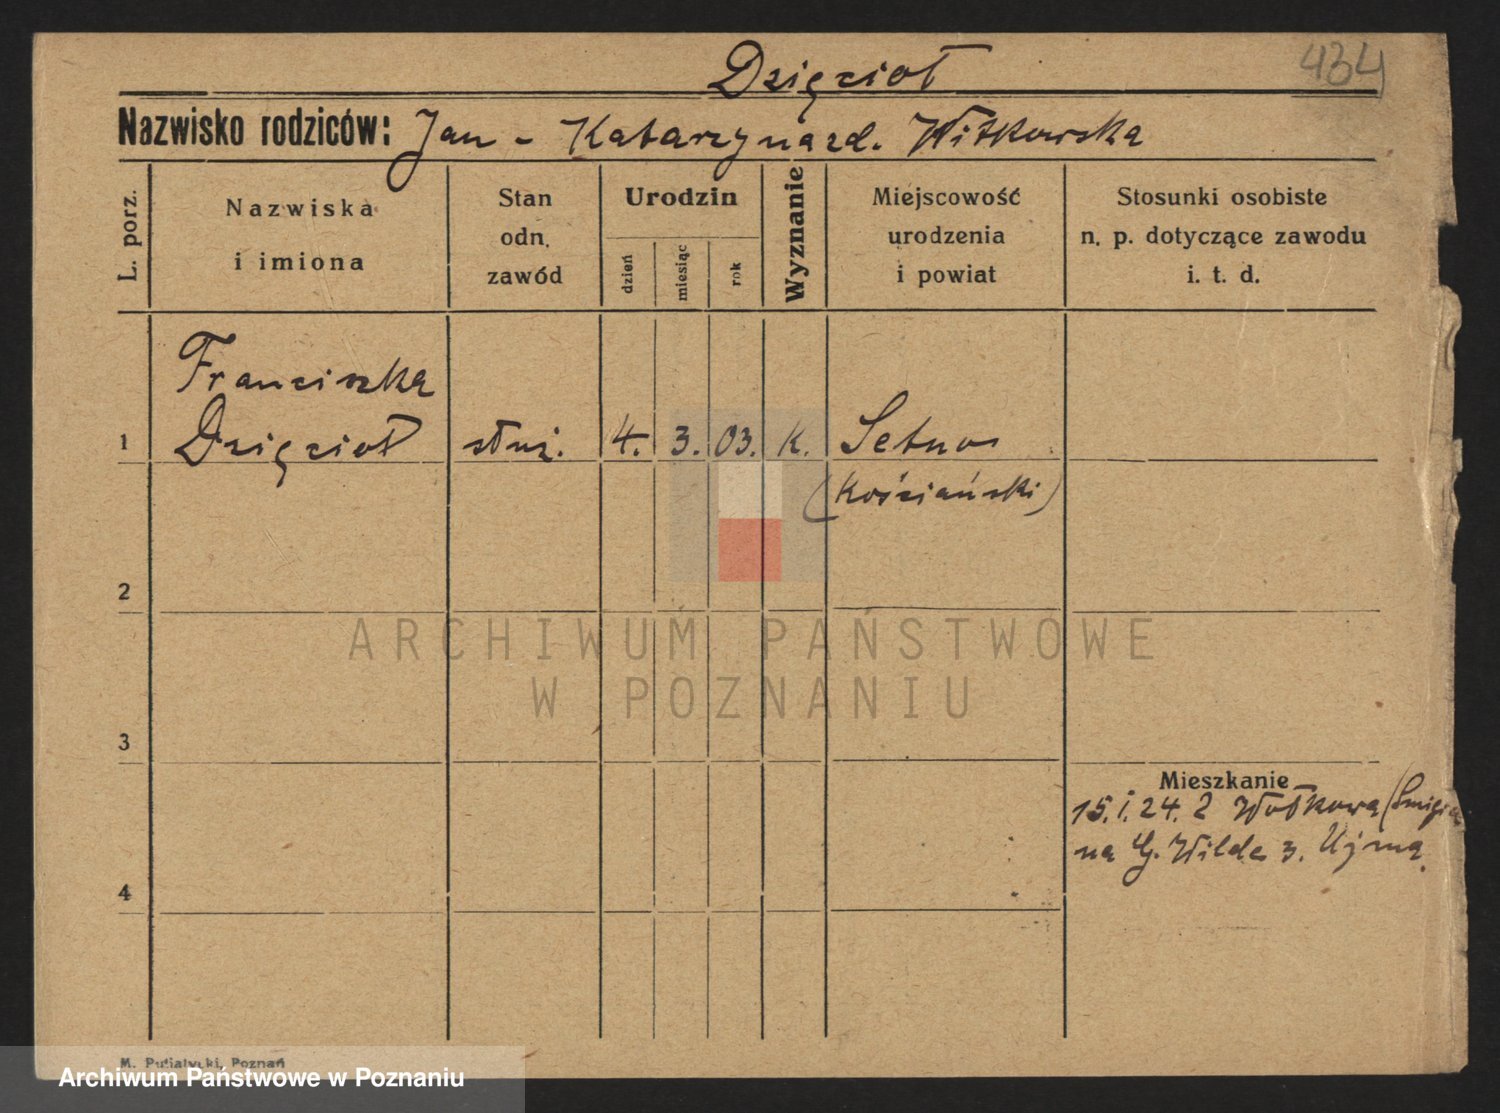 Dzięcioł
434
Nazwisko rodziców: Jan - Katarzyna zd. Witkowska
L. porz.
Nazwiska
i imiona
Stan
odn.
zawód
Urodzin
dzień
miesiąc
rok
Wyznanie
Miejscowość
urodzenia
i powiat
Stosunki osobiste
n. p. dotyczące zawodu
i. t. d.
Franciszka
1 Dzięcioł służ. 4. 3. 03. K. Setno
(Kościański)
2
ARCHIWUM PAŃSTWOWE
W POZNANIU
3
Mieszkanie
15. I. 24. z Wotkowa
na G. Wilde 3. Ujma
4
M. Putiatycki, Poznań
Archiwum Państwowe w Poznaniu